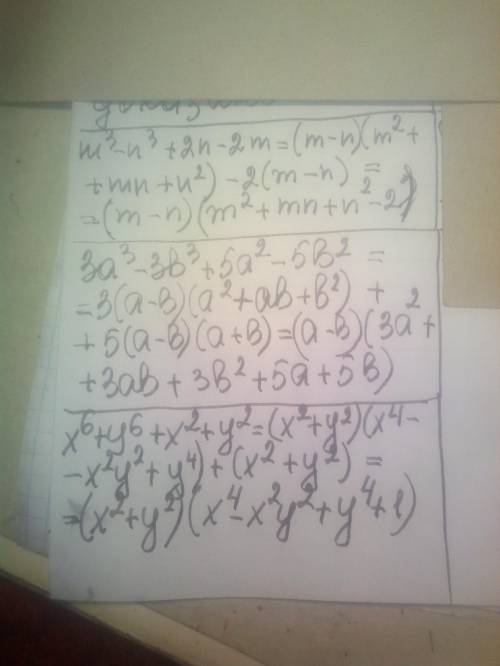 m³-n³+2n-2m=(m-n)(m²+
+mn+n²)-2(m-n)=
=(m-n)(m²+mn+n²-2)
3a³-3b³+5a²-5b²=
=3(a-b)(a²+ab+b²)+
+5(a-b)(a+b)=(a-b)(3a²+
+3ab+3b²+5a+5b)
x⁶+y⁶+x²+y²=(x²+y²)(x⁴-
-x²y²+y⁴)+(x²+y²)=
=(x²+y²)(x⁴-x²y²+y⁴+1)